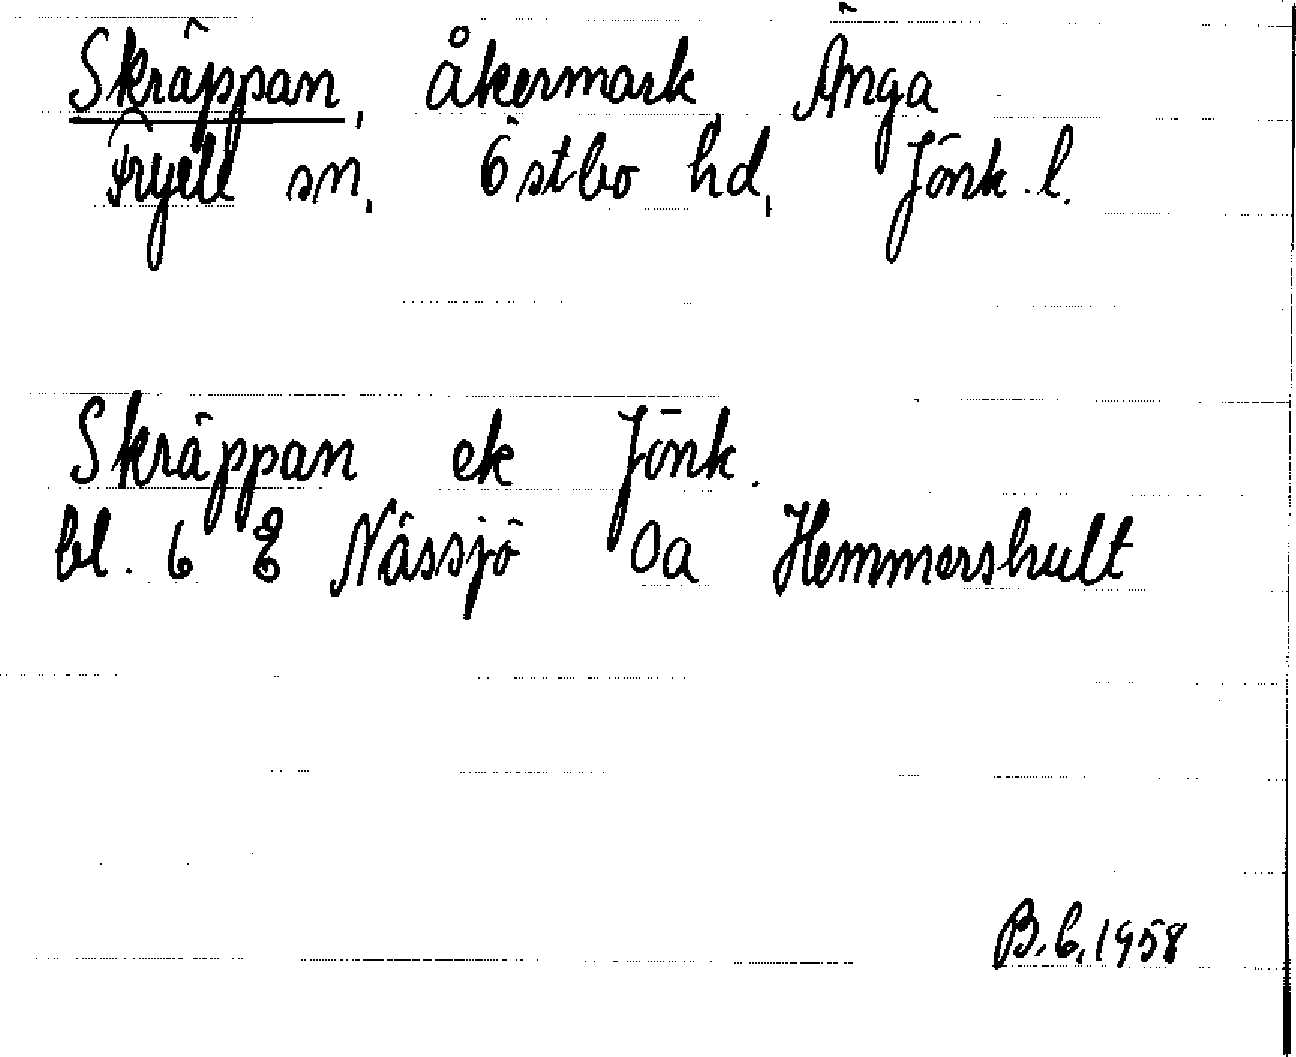 Skräppan, åkermark Änga
Fryele sn, Östbo hd, Jönk. l.
Skräppan ek Jönk.
bl. 6 E Nässjö Oa Hemmershult
B.C.1958